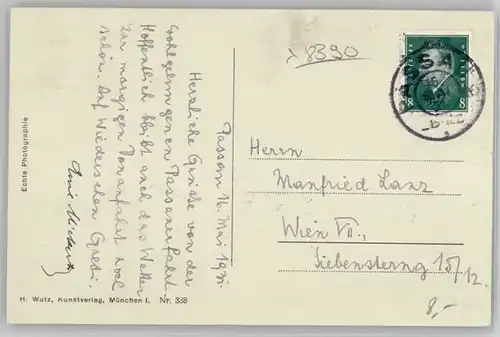 λ 8390
Passau 16. Mai 1931.
Herzliche Grüsse von der
wohlgelungenen Passauerfahrt.
Hoffentlich bleibt auch das Wetter
zur morgigen Donaufahrt noch
schön. Auf Wiedersehen Gredi.
Herrn
Manfried Lanz
Wien VII.,
Siebensterng 15/12.
8,-
PASSAU
8 8
Echte Photographie
H. Wutz, Kunstverlag, München I. Nr. 338